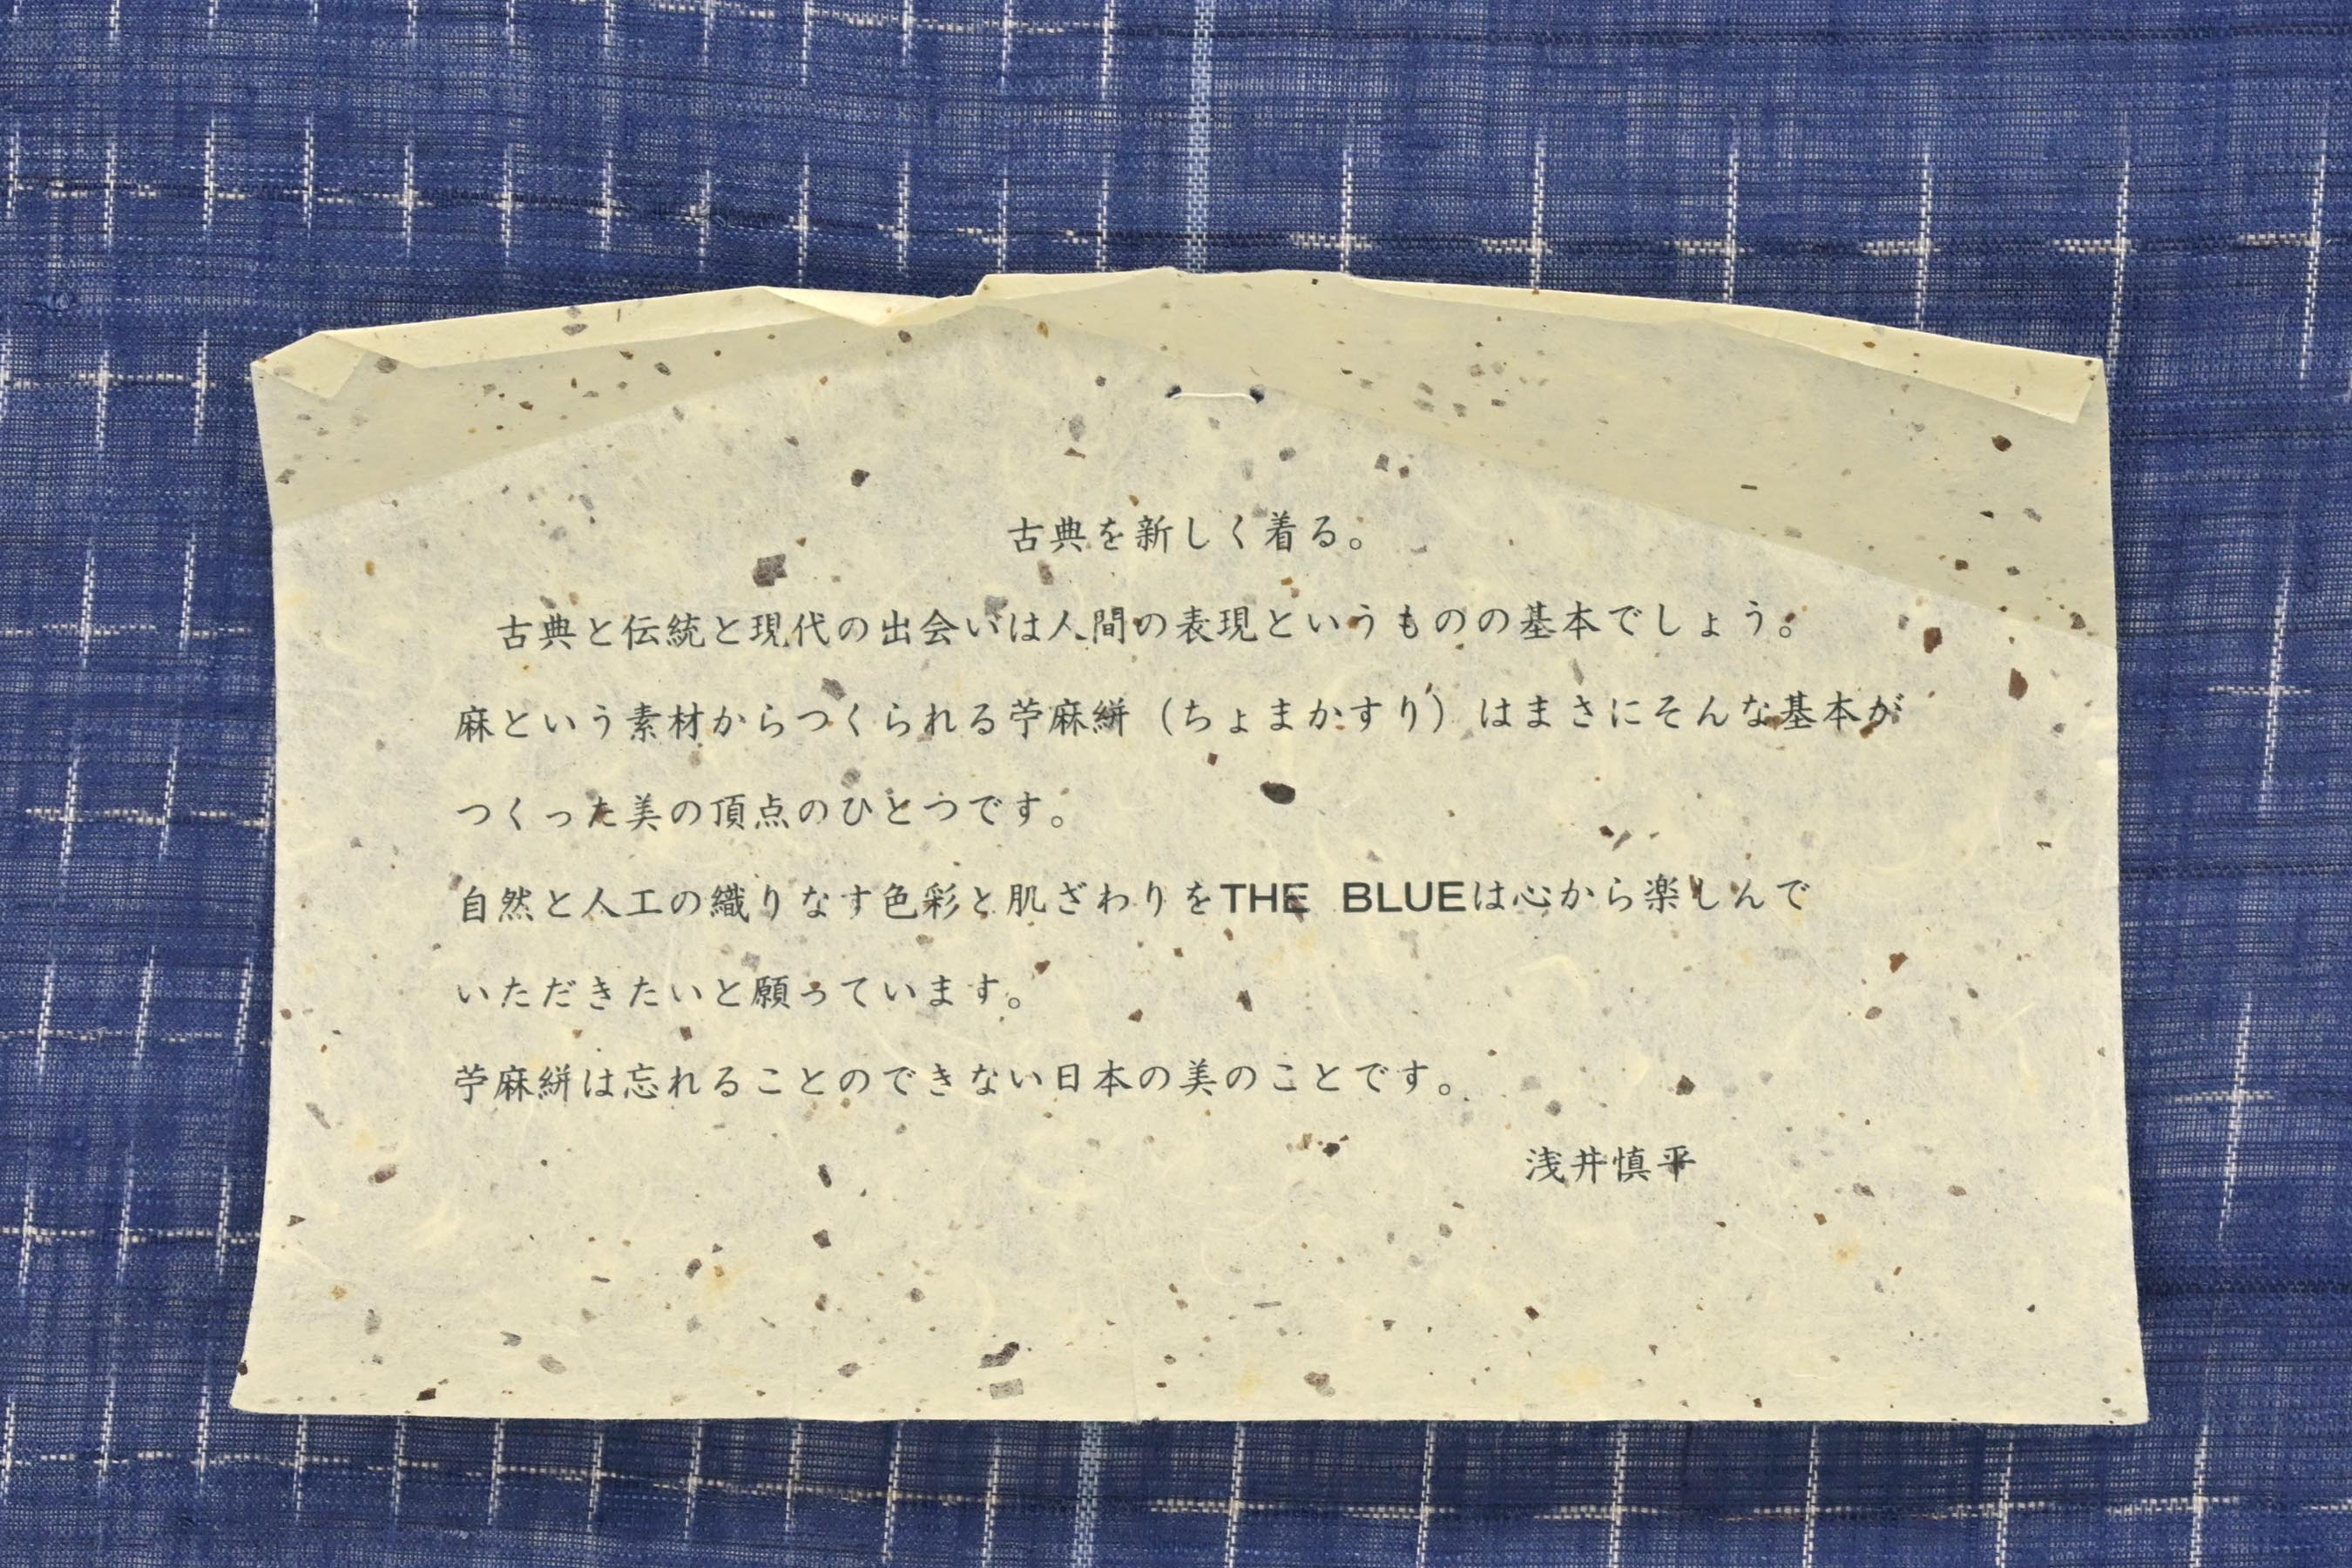 古典を新しく着る。
古典と伝統と現代の出会いは人間の表現というものの基本でしょう。
麻という素材からつくられる苧麻絣（ちょまかすり）はまさにそんな基本が
つくった美の頂点のひとつです。
自然と人工の織りなす色彩と肌ざわりをTHE BLUEは心から楽しんで
いただきたいと願っています。
苧麻絣は忘れることのできない日本の美のことです。
浅井慎平